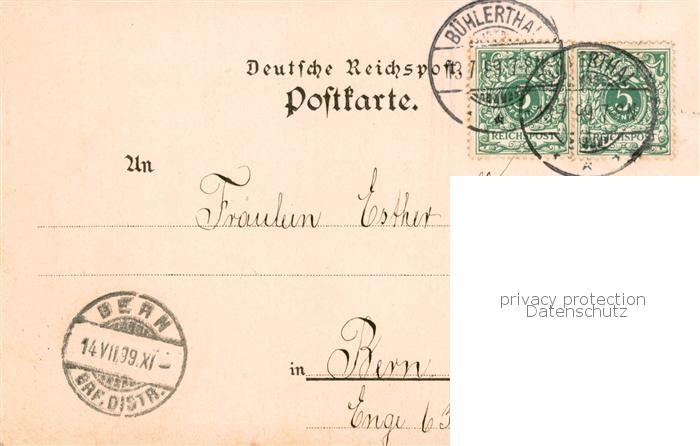 BÜHLERTHAL
Deutsche Reichspost
Postkarte.
5
5
REICHSPOST
REICHSPOST
An
Fräulein Esther
privacy protection
Datenschutz
BERN
14.VII.99.XI-
BRF.DISTR.
in Bern
Enge 63